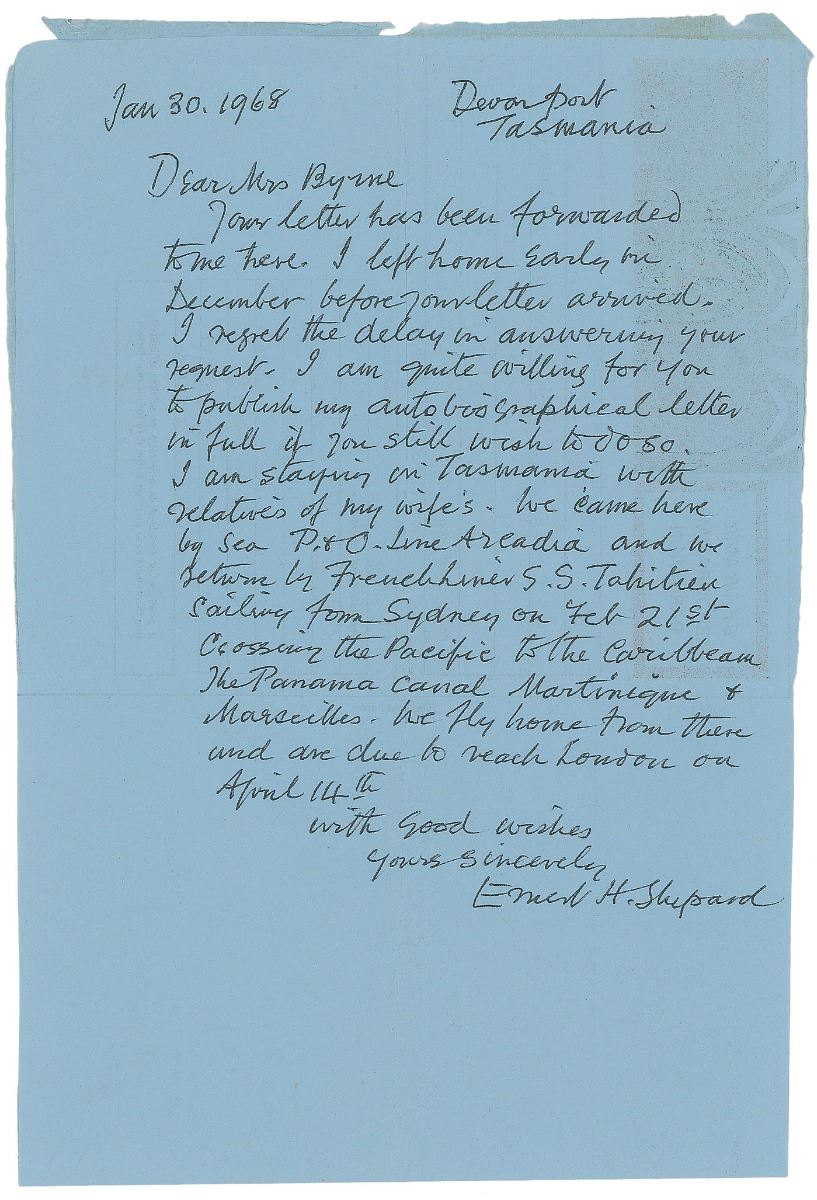 Jan 30. 1968
Devonport
Tasmania
Dear Mrs Byrne
Your letter has been forwarded
to me here. I left home early in
December before your letter arrived.
I regret the delay in answering your
request. I am quite willing for you
to publish my autobiographical letter
in full if you still wish to do so.
I am staying in Tasmania with
relatives of my wife's. We came here
by sea P. & O. Line Arcadia and we
return by French liner S.S. Tahitien
sailing from Sydney on Feb 21st
Crossing the Pacific to the Caribbean
The Panama Canal Martinique &
Marseilles. We fly home from there
and are due to reach London on
April 14th
with good wishes
yours sincerely
Ernest H. Shepard